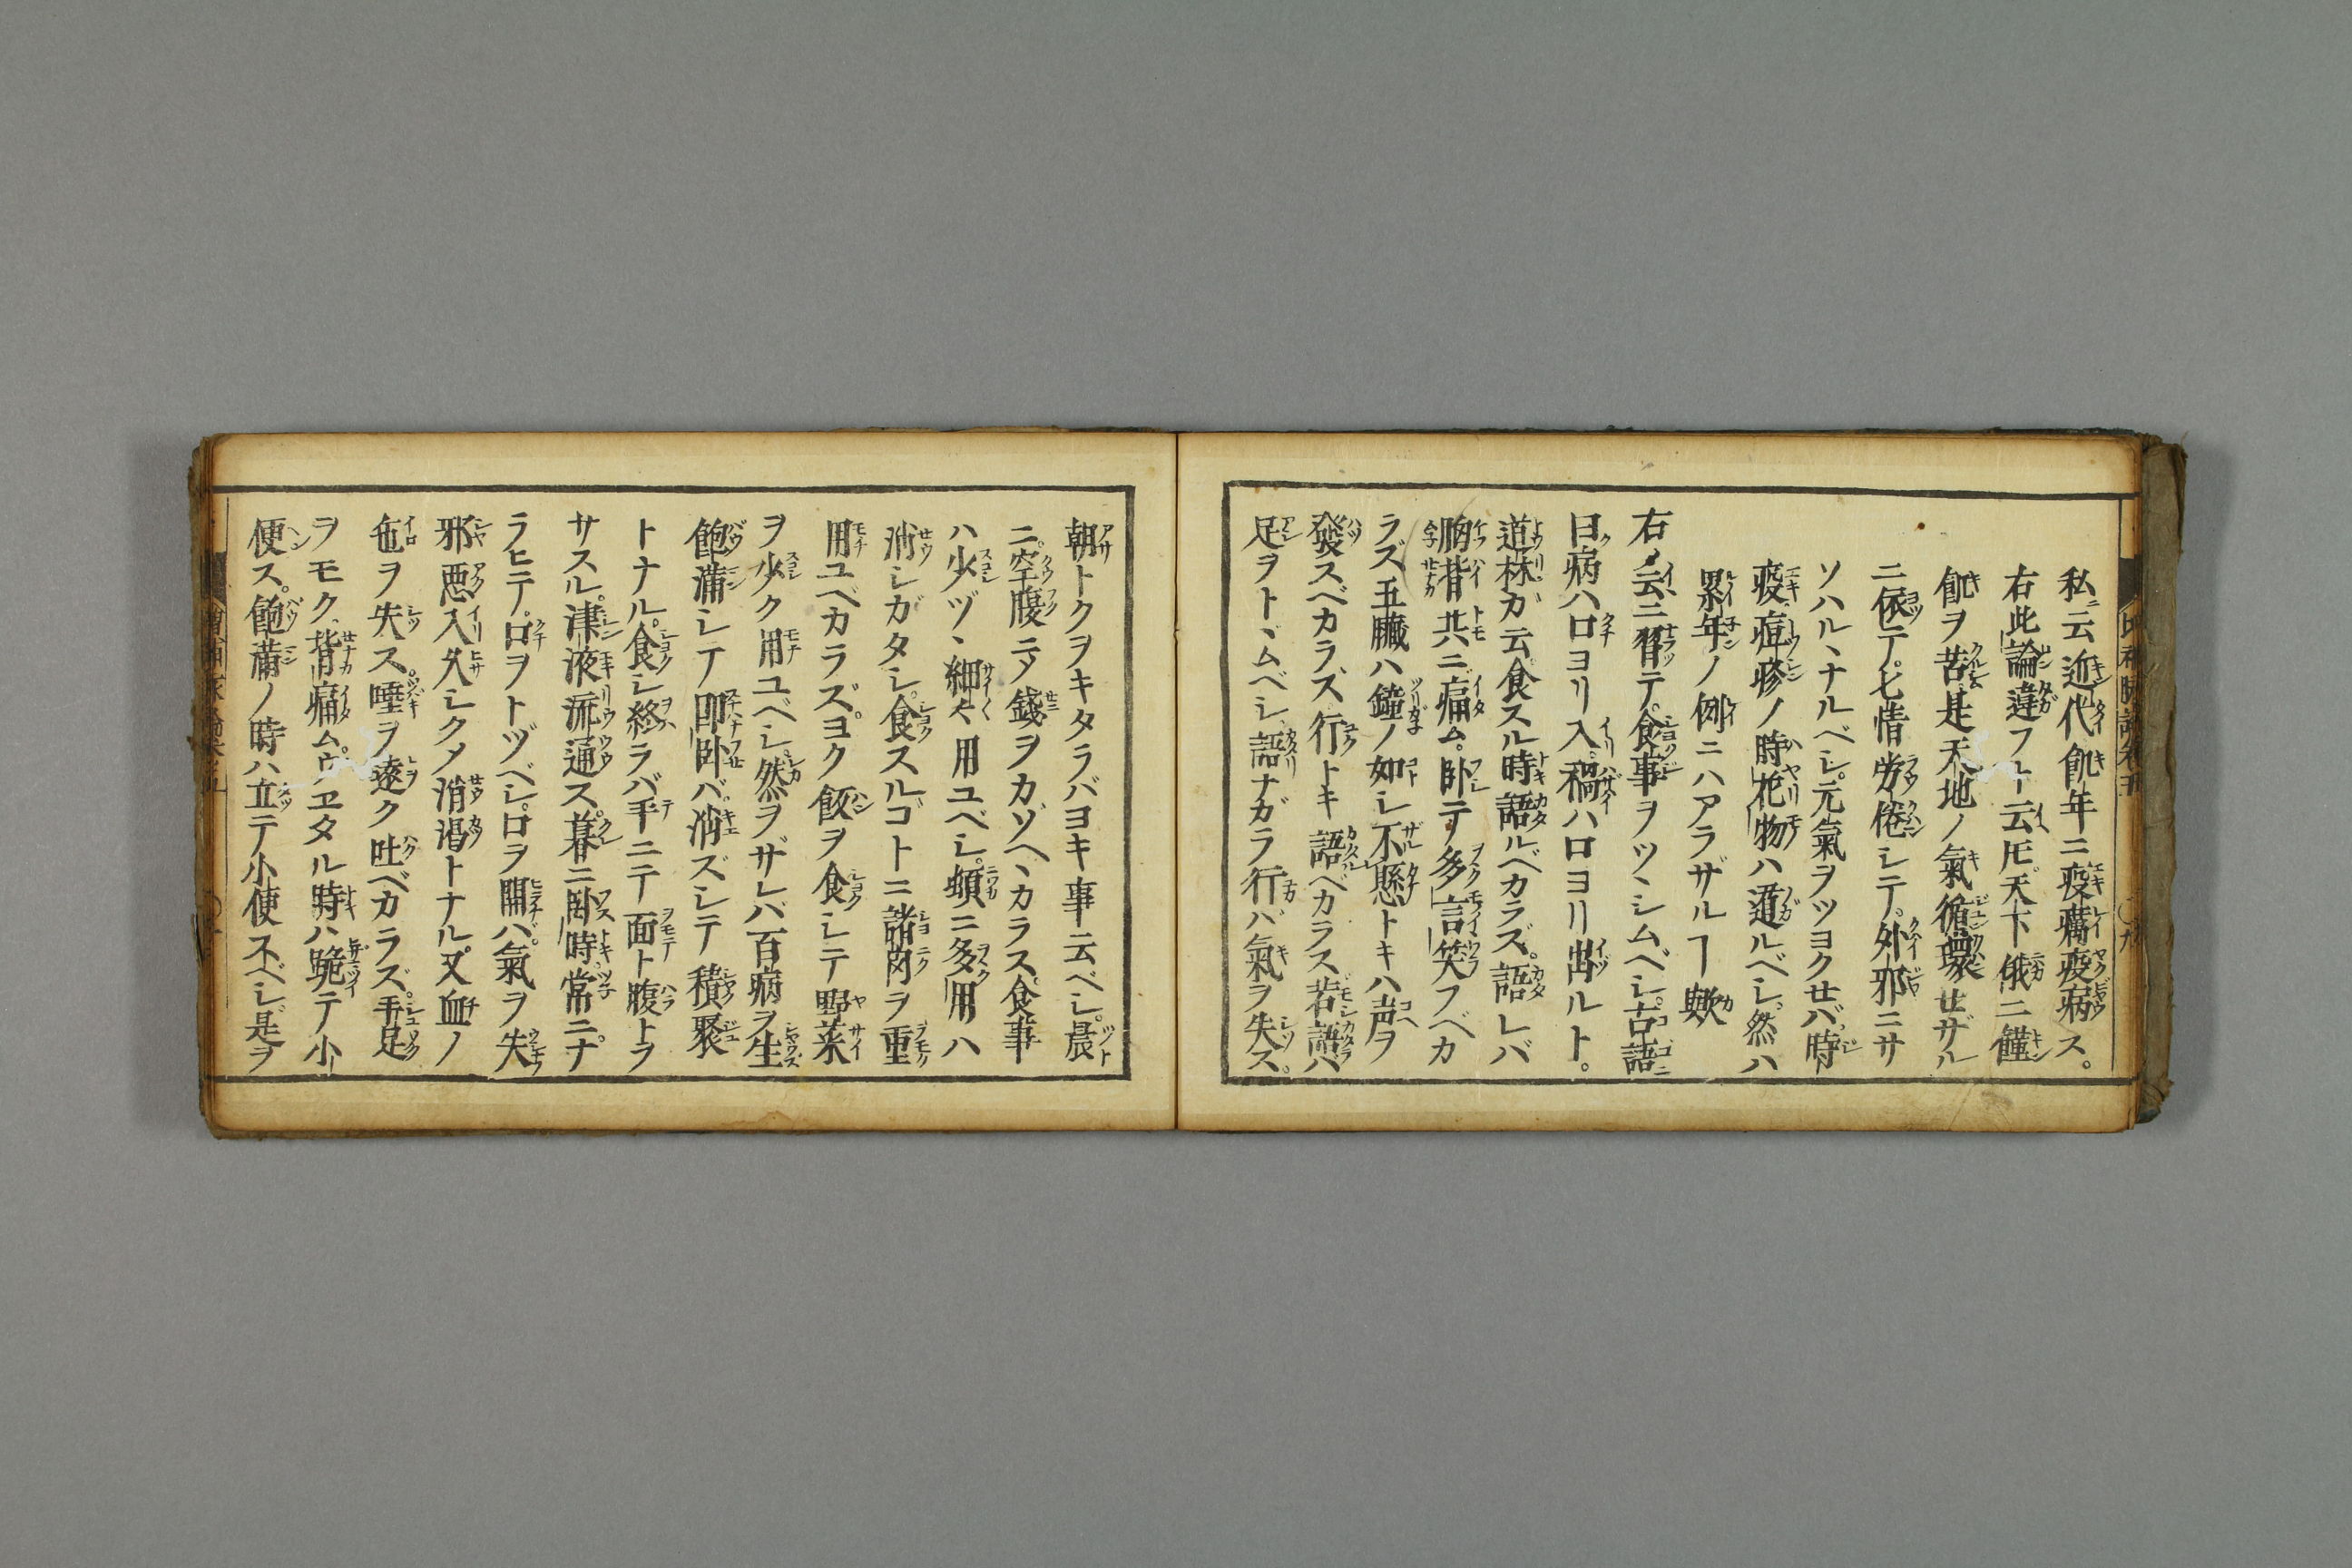 私ニ云近代飢年ニ疫癘疫病ス。
右此論違フヿ云𪜈。天下俄ニ饉
飢ヲ苦是天地ノ氣循環せザル
ニ依テ。七情労倦シテ。外邪ニサ
ソハル丶ナルベシ。元氣ヲツヨクせバ。時
疫。痘疹ノ時花物ハ遁ルベシ。然ハ
累年ノ例ニハアラザルヿ歟
右ニ云ニ習テ。食事ヲツ丶シムベシ。古語ニ
曰病ハ口ヨリ入。禍ハ口ヨリ出ルト。
道林カ云食スル時語ルベカラズ。語レバ
胸背共ニ痛ム。卧テ多言笑フベカ
ラズ五臓ハ鐘ノ如シ不懸トキハ声ヲ
發スベカラズ。行トキ語ベカラス若語ハ
足ヲト丶ムベシ。語ナガラ行バ氣ヲ失ス。
朝トクヲキタラバヨキ事云ベシ。晨
ニ。空腹ニテ錢ヲカゾヘ丶カラス食事
ハ少ヅ丶細々用ユベシ。頓ニ多用ハ
消シガタシ。食スルコトニ諸肉ヲ重
用ユベカラズ。ヨク飯ヲ食シテ野菜
ヲ少ク用ユベシ。然ヲザレバ百病ヲ生
飽満シテ即卧バ消ズシテ積聚
トナル。食シ終ラバ手ニテ面ト腹トヲ
サスル。津液流通ス。暮ニ卧時常ニナ
ラヒテ。口ヲトヅベシ。口ヲ開バ。氣ヲ失
邪悪入久シクメ消渇トナル。又血ノ
色ヲ失ス。唾ヲ遠ク吐ベカラズ。手足
ヲモク。背痛ム。ウヱタル時ハ跪テ小
便ス。飽満ノ時ハ立テ小便スベシ。是ヲ